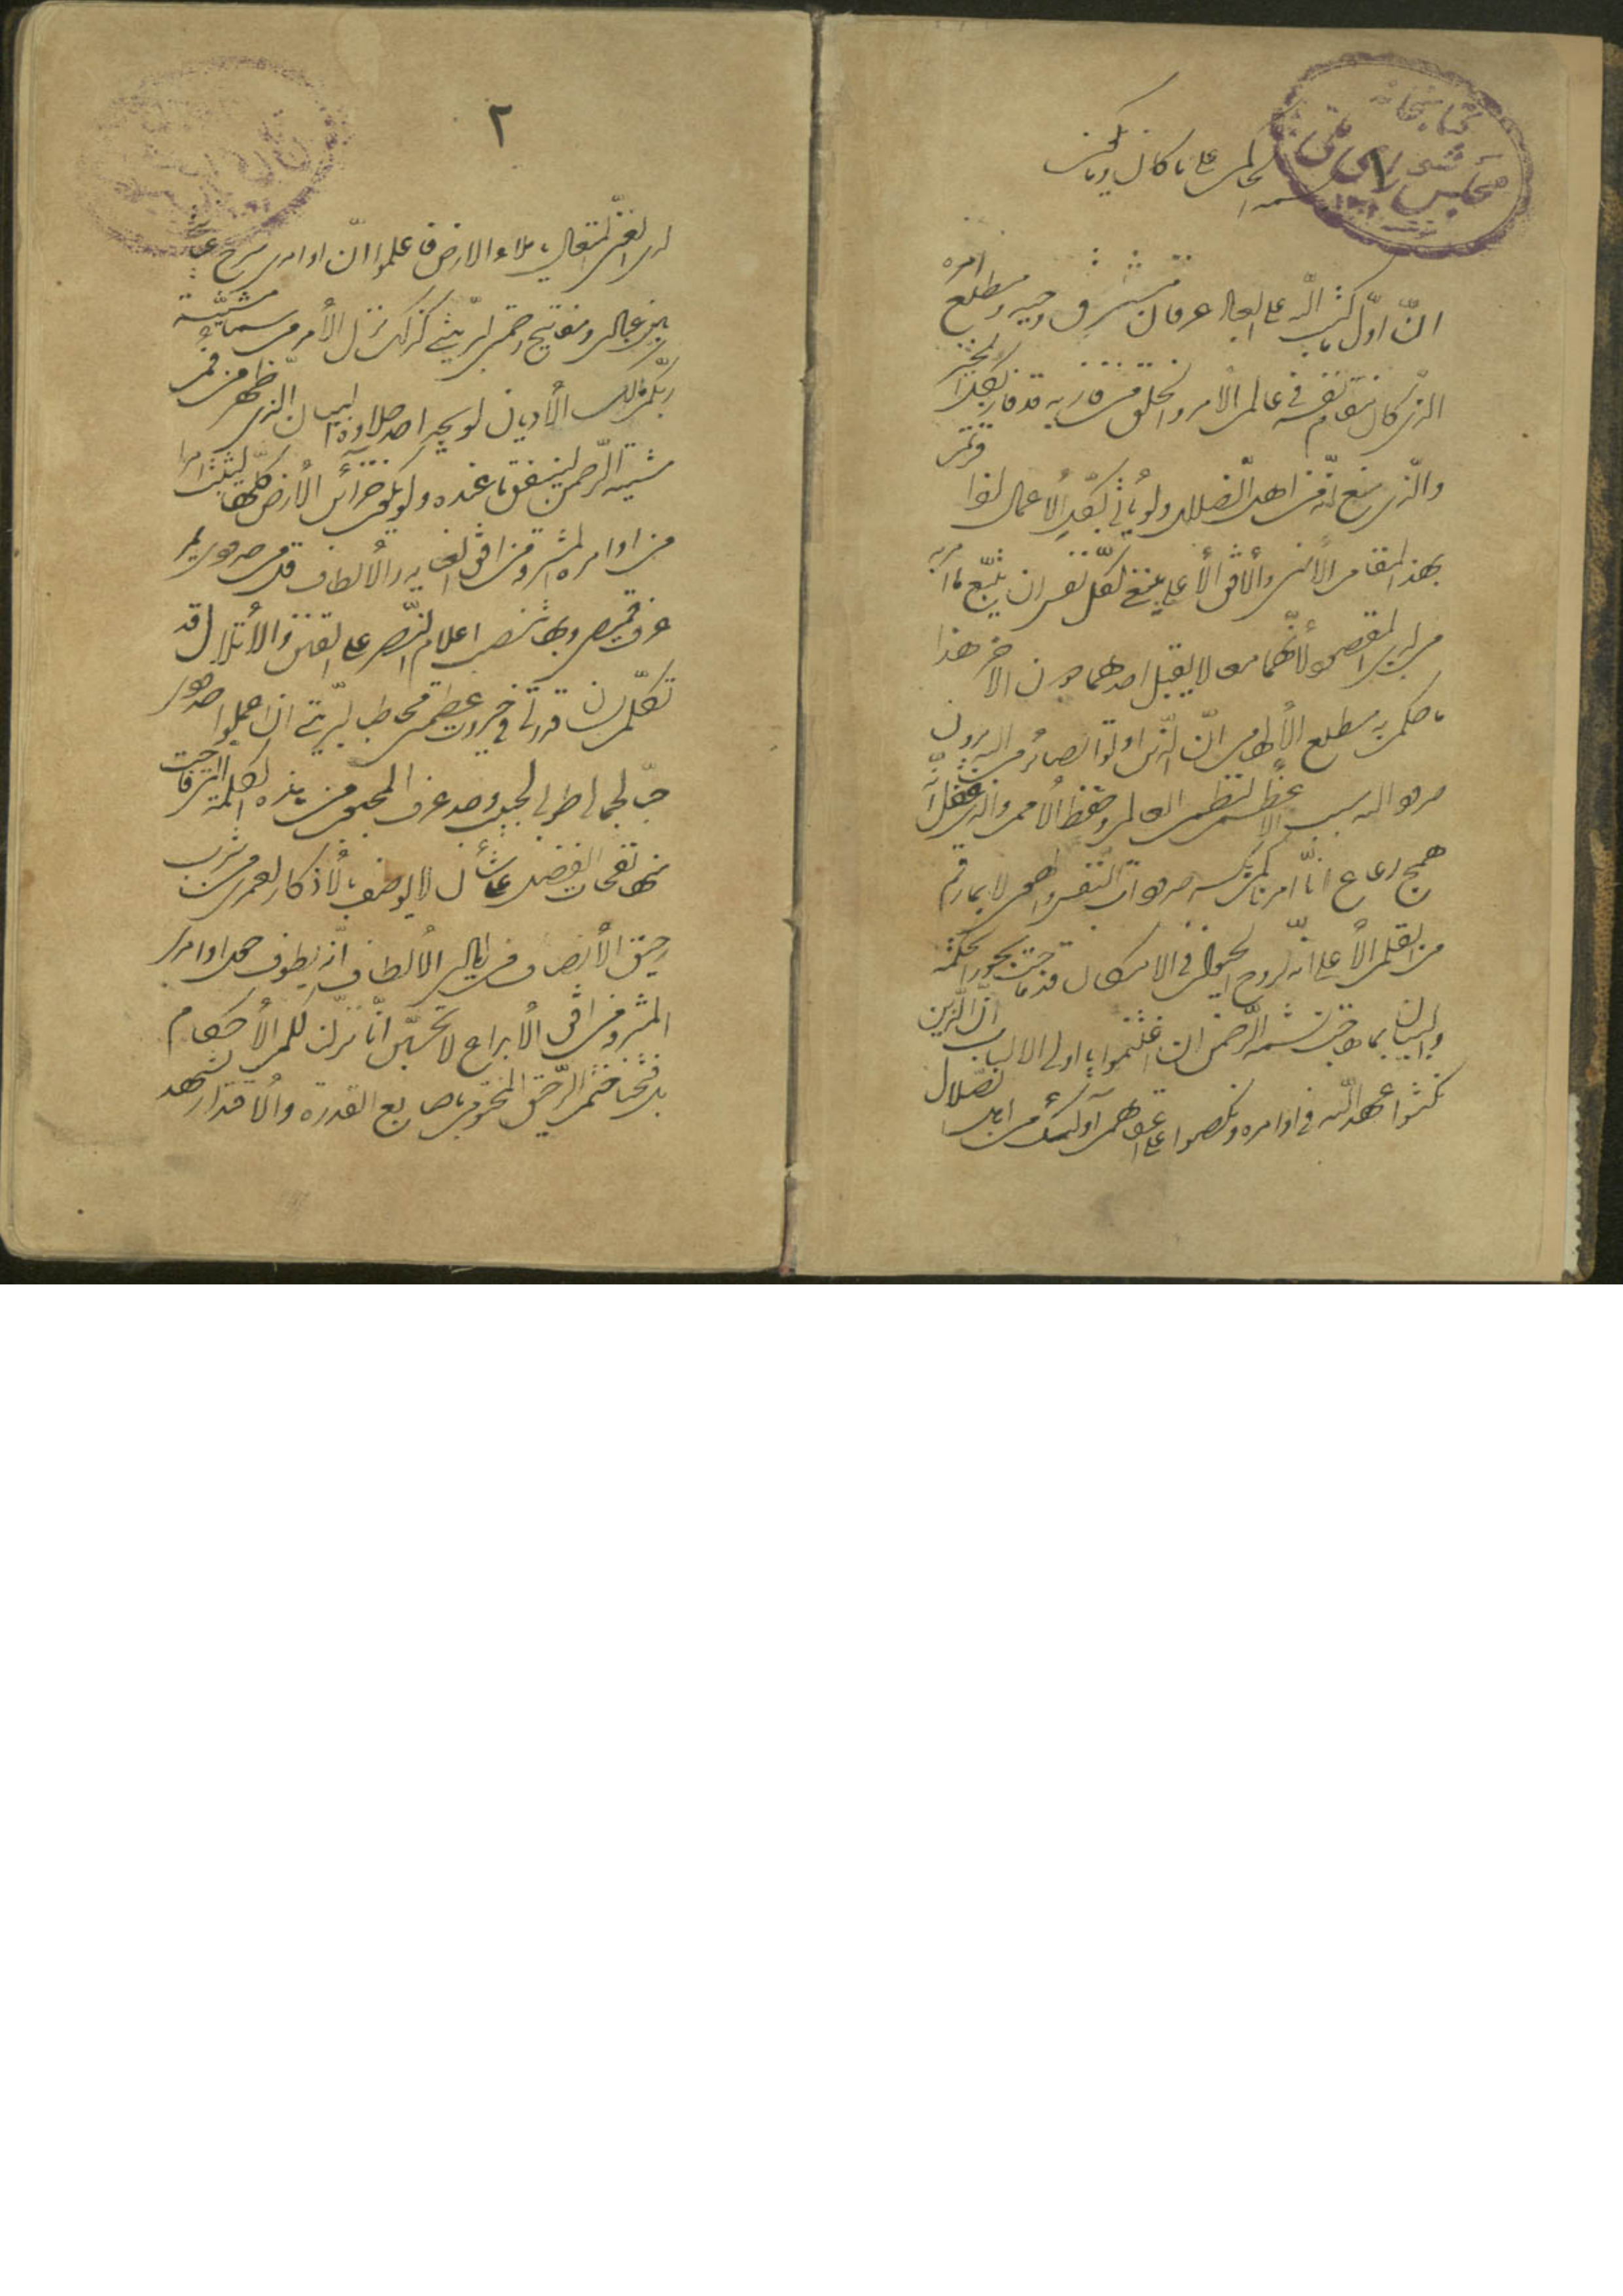 کتابخانه
مجلس شورای ملی
۱
بسمه الحاکم علی ما کان و ما یکون
انّ اوّل ما کتب اللّه علی العباد عرفان مشرق وحیه و مطلع امره
الذی کان مقام نفسه فی عالم الأمر و الخلق من فاز به قد فاز بکل الخیر
و الّذی منع انّه من اهل الضلال و لو یأتی بکلّ الأعمال اذا فزتم
بهذا المقام الأسنی و الأفق الأعلی ینبغی لکل نفس ان یتّبع ما امر به
من لدی المقصود لأنّهما معا لا یقبل احدهما دون الاخر هذا
ما حکم به مطلع الألهام انّ الّذین اوتوا بصائر من اللّه یرون
حدود اللّه سبب الاعظم لنظم العالم و حفظ الأمم و الذی غفل انّه من
همج رعاع انّا امرناکم بکسر حدودات النفس و الهوی لا ما رقم
من القلم الأعلی انّه لروح الحیوان فی الامکان قد ماجت بحور الحکمة
و البیان بما هاجت نسمة الرّحمن اغتنموا یا اولی الالباب انّ الّذین
نکثوا عهد اللّه فی اوامره و نکصوا علی اعقابهم اولئک من اهل الضلال
۲
لدی الغنیّ المتعال یا ملاء الارض فاعلموا انّ اوامری سرج عنایتی
بین عبادی و مفاتیح رحمتی لبریّتی کذلک نزل الأمر من سماء مشیّة
ربّکم مالک الأدیان لو یجد احد حلاوة البیان الذی ظهر من فم
مشیّة الرّحمن لینفق ما عنده و لو یکون خزائن الأرض کلّها لیثبت امرا
من اوامره المشرقة من افق العنایة و الألطاف قل من حدودی یمر
عرف قمیصی و بها تنصب اعلام النّصر علی القنن و الأتلال قد
تکلّم لسان قدرتی فی جبروت عظمتی مخاطبا لبریّتی ان اعملوا حدودی
حبّا لجمالی طوبی لحبیب وجد عرف المحبوب من هذه الکلمة التی فاحت
منها نفحات الفضل علی شأن لا توصف بالأذکار لعمری من شرب
رحیق الأنصاف من ایادی الألطاف انّه یطوف حول اوامری
المشرقة من افق الأبداع لا تحسبنّ انّا نزّلنا لکم الأحکام
بل فتحنا ختم الرّحیق المختوم باصابع القدرة و الأقتدار یشهد